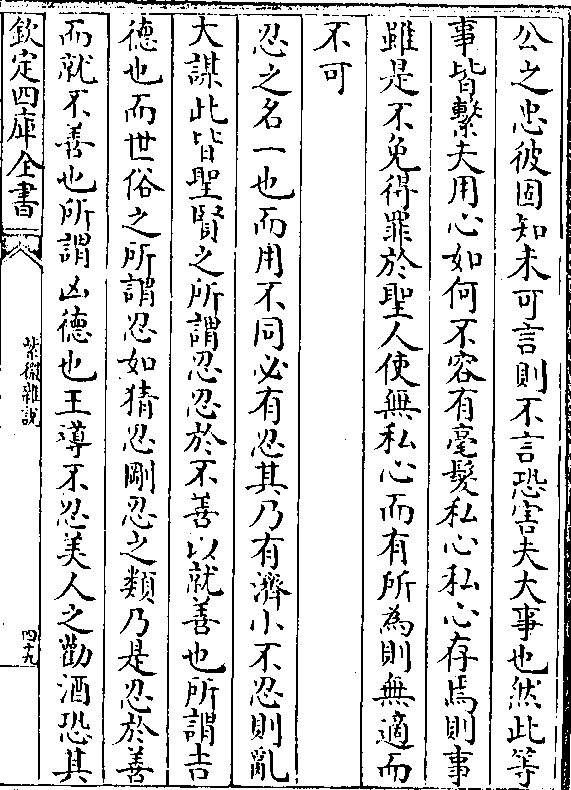 公之忠彼固知未可言則不言恐害夫大事也然此等
事皆繫夫用心如何不容有毫髮私心私心存焉則事
雖是不免得罪於聖人使無私心而有所為則無適而
不可
忍之名一也而用不同必有忍其乃有濟小不忍則亂
大謀此皆聖賢之所謂忍忍於不善以就善也所謂吉
德也而世俗之所謂忍如猜忍剛忍之類乃是忍於善
而就不善也所謂凶德也王導不忍美人之勸酒恐其
欽定四庫全書
紫微雜說
四九